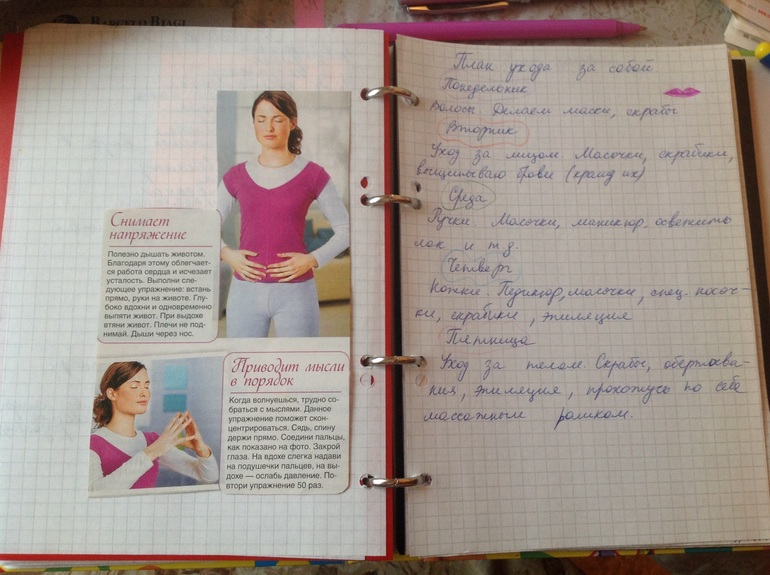 BARCELÓ BIAGI
Снимает
напряжение
Полезно дышать животом.
Благодаря этому облегчает-
ся работа сердца и исчезает
усталость. Выполни сле-
дующее упражнение: встань
прямо, руки на животе. Глу-
боко вдохни и одновременно
выпяти живот. При выдохе
втяни живот. Плечи не под-
нимай. Дыши через нос.
Приводит мысли
в порядок
Когда волнуешься, трудно со-
браться с мыслями. Данное
упражнение поможет скон-
центрироваться. Сядь, спину
держи прямо. Соедини пальцы,
как показано на фото. Закрой
глаза. На вдохе слегка надави
на подушечки пальцев, на вы-
дохе — ослабь давление. По-
втори упражнение 50 раз.
План ухода за собой
Понедельник
Волосы. Делаем маски, скрабы
Вторник
Уход за лицом. Масочки, скрабики,
выщипываю брови (крашу их)
Среда
Ручки. Масочки, маникюр, освежить
лак и т.д.
Четверг
Ножки. Педикюр, масочки, спец. носоч-
ки, скрабики, эпиляция
Пятница
Уход за телом. Скрабы, обертыва-
ния, эпиляция, прохожусь по себе
массажным роликом.